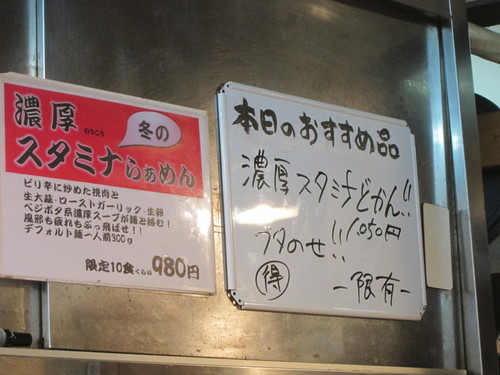 濃厚
のうこう
冬の
スタミナらぁめん
ピリ辛に炒めた挽肉と
生大蒜・ローストガーリック・生卵
ベジポタ系濃厚スープが麺と絡む!
風邪も疲れもぶっ飛ばせ!!
デフォルト麺一人前300g
限定10食くらい 980円
本日のおすすめ品
濃厚スタミナどかん!!
1050円
ブタのせ!!
得
—限有—